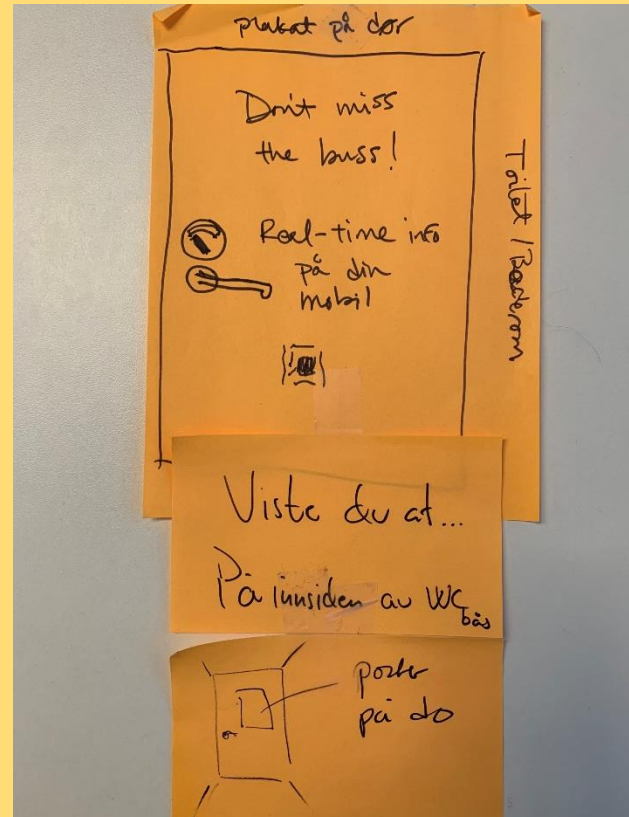 plakat på dør
Don't miss
the buss!
Real-time info
på din
mobil
Toilet / Baderom
Viste du at...
På innsiden av WC
bås
poster
på do